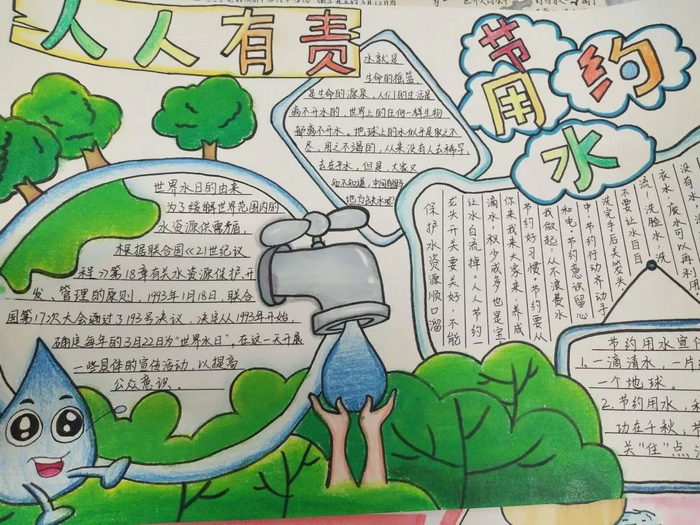 人人有责
节约
用水
水就是
生命的摇篮
是生命的源泉。人们的生活是
离不开水的,世界上的任何一样生物
都离不开水。地球上的水似乎是取之不
尽,用之不竭的,从来没有人去稀罕,
去在乎水,但是,大家又
地方缺水呢
世界水日的由来
为了缓解世界范围内的
水资源供需矛盾,
根据联合国《21世纪议
程》第18章有关水资源保护、开
发、管理的原则,1993年1月18日,联合
国第17次大会通过了193号决议,决定从1993年开始,
确定每年的3月22日为“世界水日”,在这一天开展
一些具体的宣传活动,以提高
公众意识。
没有水,
衣水,废水可以再利用
流,洗脸水、洗
不要让水日日
洗完手后关笼头,
中,节约行动养动手
和电,节约意识留心
我做起,从不浪费水
节约好习惯,节约要从
你来我来大家来,养成
滴水,积少成多也是宝
让水白流掉。人人节约一
龙头开关要关好,不能
保护水资源顺口溜
节约用水宣传
1.一滴清水,一片
一个地球。
2.节约用水,
功在千秋,节
关“住”点